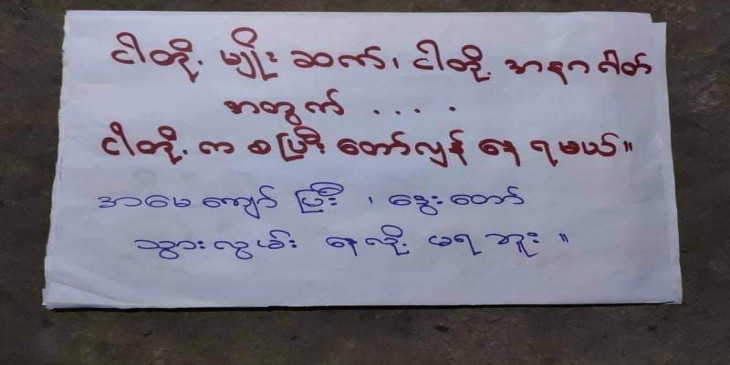 ငါတို့ မျိုးဆက်၊ ငါတို့ အနာဂါတ်
အတွက် . . . .
ငါတို့ က စပြီး တော်လှန် နေ ရမယ်။
အမေကျော် ပြီး ၊ ဒွေးတော်
သွားလွမ်း နေလို့ မရ ဘူး ။